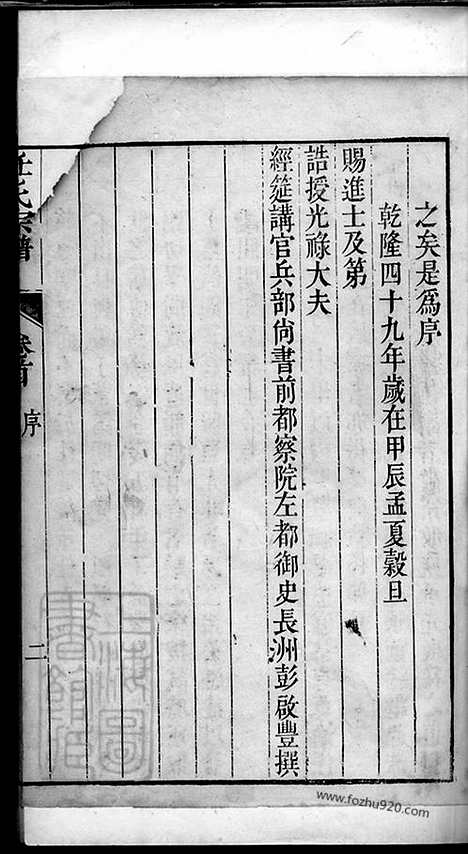 之矣是爲序
乾隆四十九年歲在甲辰孟夏穀旦
賜進士及第
誥授光祿大夫
經筵講官兵部尚書前都察院左都御史長洲彭啟豐撰
任氏宗譜
卷首
序
二
www.fozhu920.com